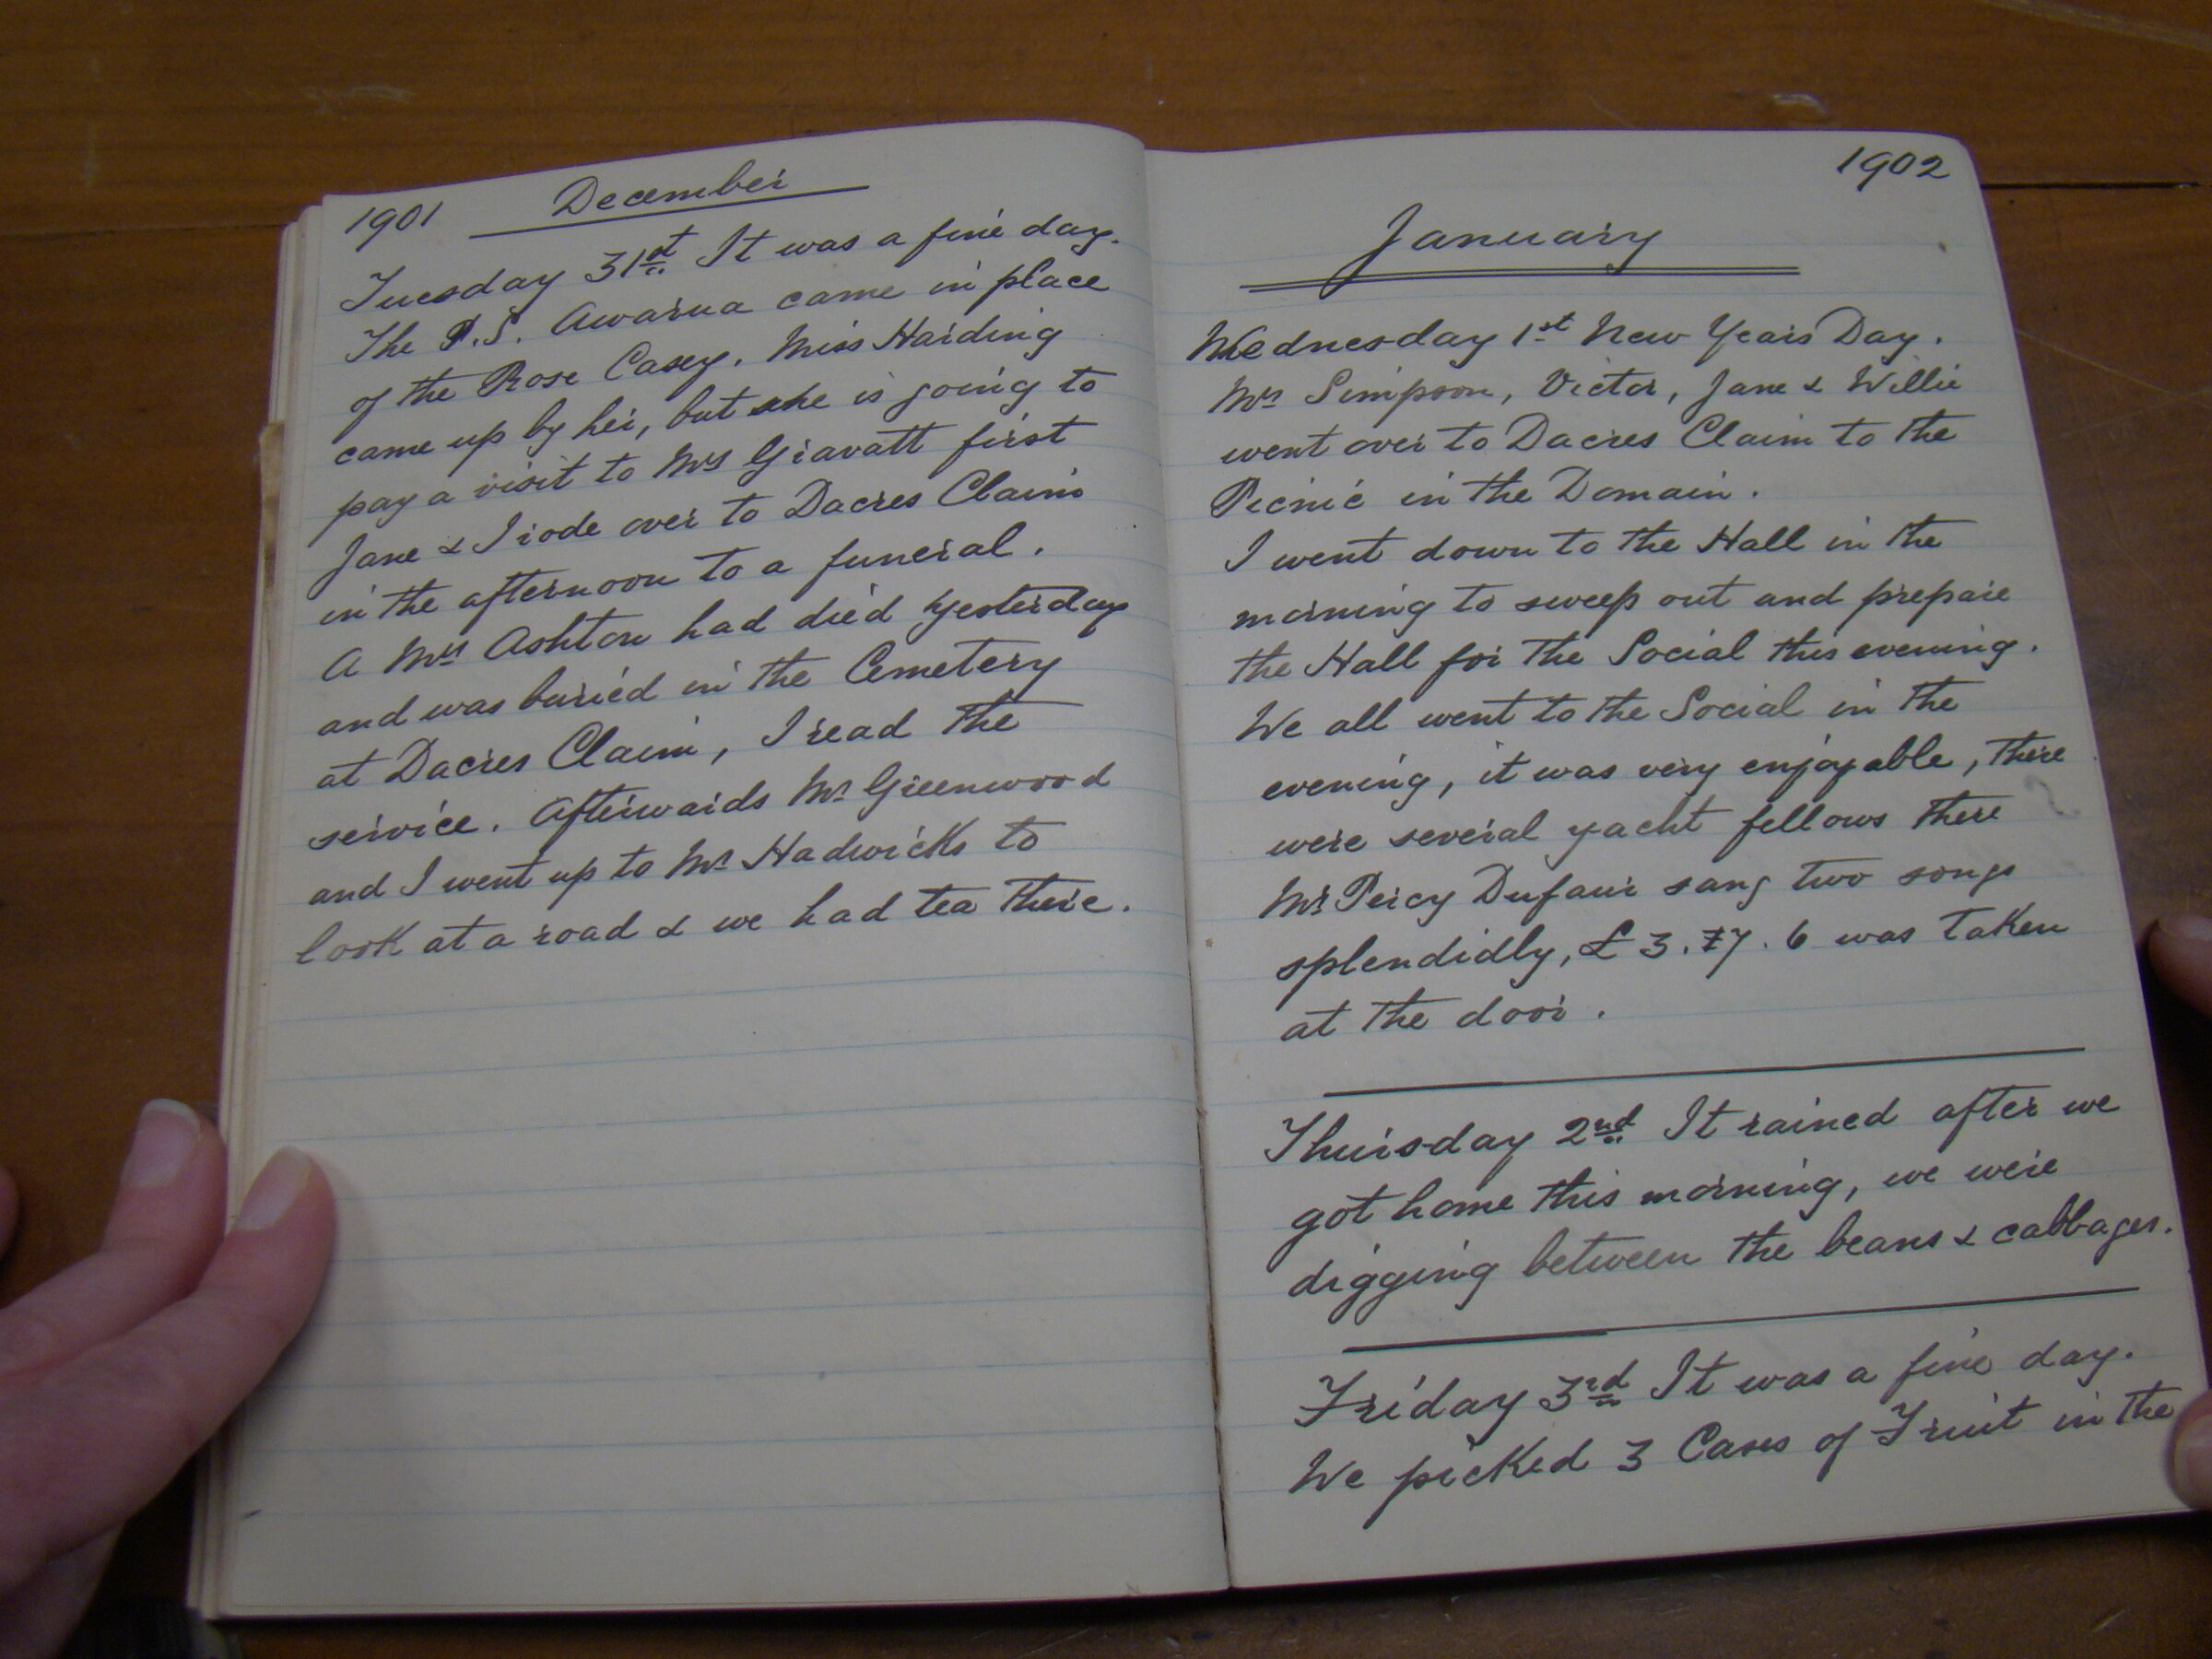 1901 December
Tuesday 31st It was a fine day.
The P.S. Awarua came in place
of the Rose Casey. Miss Harding
came up by her, but she is going to
pay a visit to Mrs Gravatt first
Jane & I rode over to Dacres Claim
in the afternoon to a funeral.
A Mrs Ashton had died yesterday
and was buried in the Cemetery
at Dacres Claim, I read the
service. Afterwards Mr Greenwood
and I went up to Mr Hadwicks to
look at a road & we had tea there.
1902
January
Wednesday 1st New Years Day.
Mrs Simpson, Victor, Jane & Willie
went over to Dacres Claim to the
Picnic in the Domain.
I went down to the Hall in the
morning to sweep out and prepare
the Hall for the Social this evening.
We all went to the Social in the
evening, it was very enjoyable, there
were several yacht fellows there
Mr Percy Dufaur sang two songs
splendidly, £ 3. 7. 6 was taken
at the door.
Thursday 2nd It rained after we
got home this morning, we were
digging between the beans & cabbages.
Friday 3rd It was a fine day.
We picked 3 Cases of Fruit in the